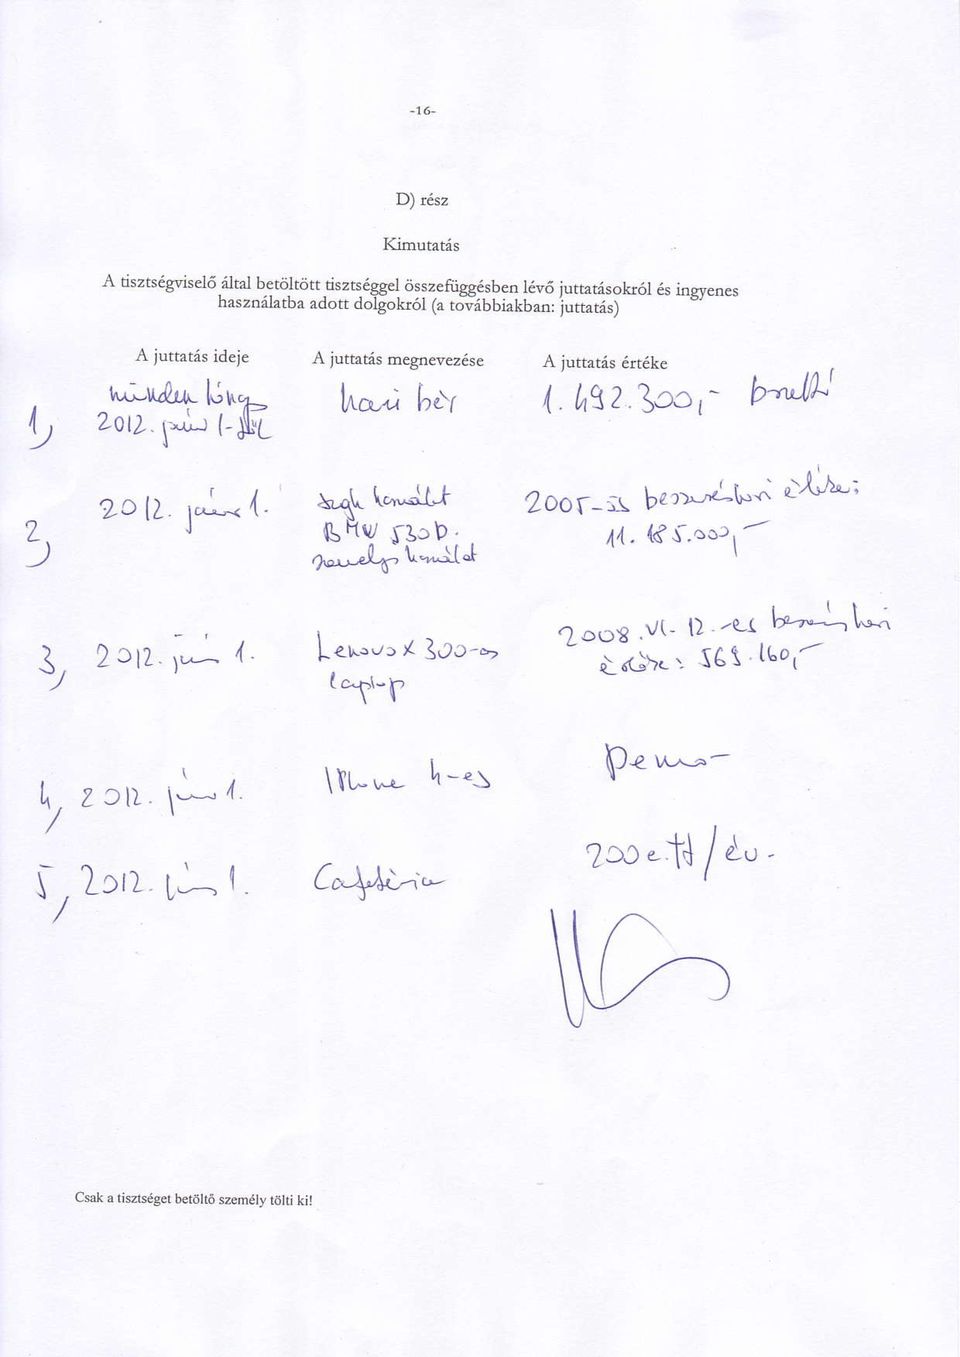 -16-
D) rész
Kimutatás
A tisztségviselő által betöltött tisztséggel összefüggésben lévő juttatásokról és ingyenes
használatba adott dolgokról (a továbbiakban: juttatás)
A juttatás ideje A juttatás megnevezése A juttatás értéke
1) minden hónap havi bér 1.492.300,- bruttó
2012. június 1-től
2) 2012. június 1. használat 2005-ös beszerzéskori értéke:
BMW 530D. 11.185.000,-
személyes használat
3, 2012. június 1. Lenovo X 300-as 2008.VI. 12.-es beszerzéskori
laptop értéke: 569.160,-
4, 2012. június 1. IPhone 4-es
5, 2012. június 1. Cafetéria 200 e.Ft/év.
Csak a tisztséget betöltő személy tölti ki!